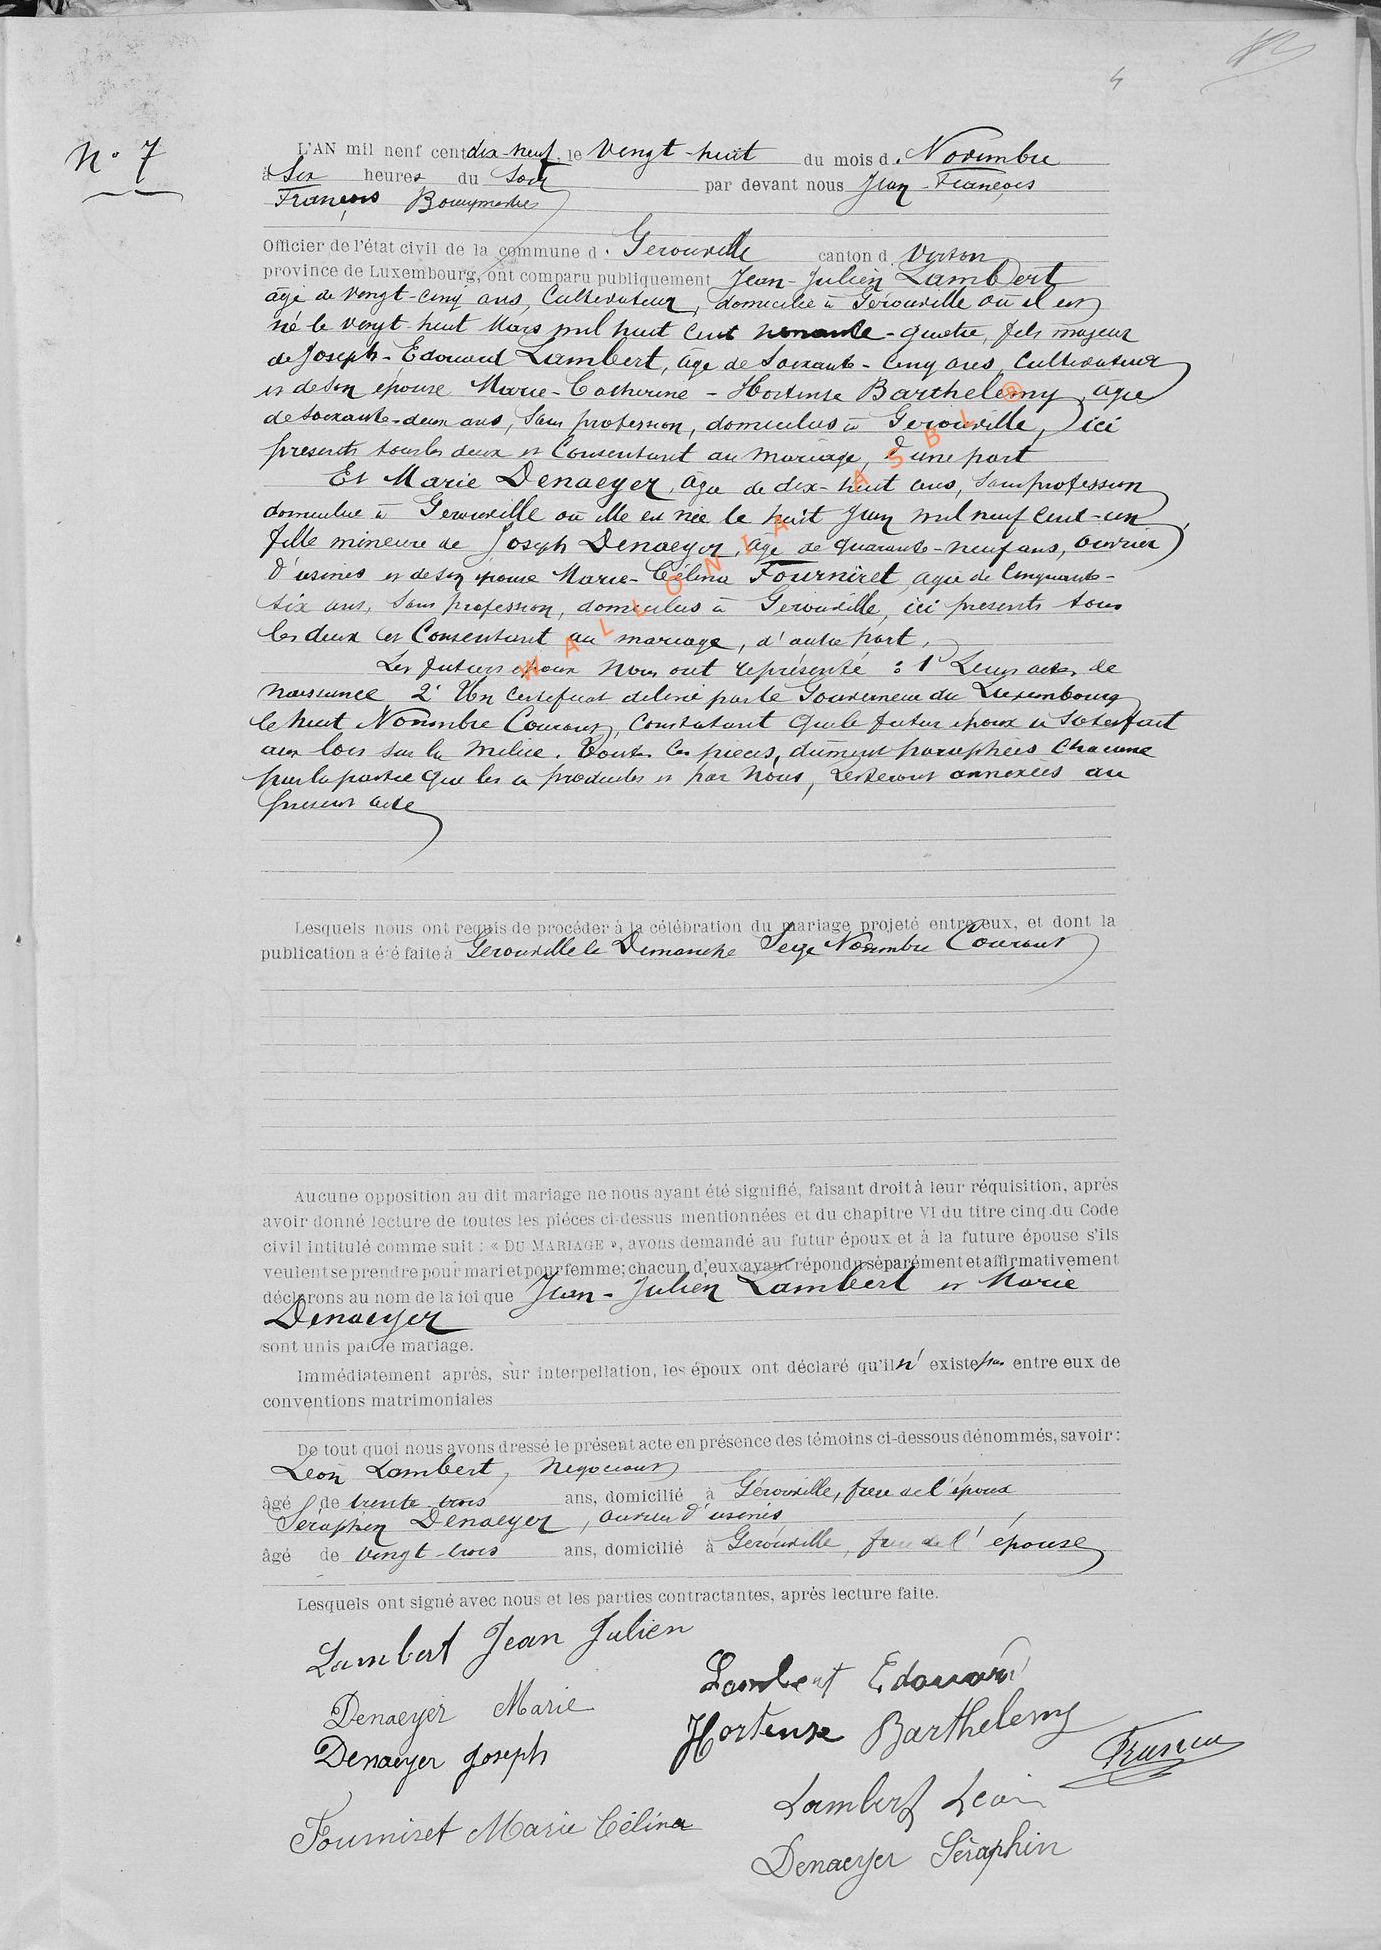 4
N° 7
L'AN mil neuf cent dix-neuf, le vingt-huit du mois d. Novembre
à Six heures du Soir par devant nous Jean-François
François Bourgmestre
Officier de l'état civil de la commune d. Gerouville canton d. Virton
province de Luxembourg, ont comparu publiquement Jean-Julien Lambert
âgé de vingt-cinq ans, Cultivateur, domicilié à Gérouville où il est
né le vingt huit Mars mil huit cent nonante-quatre, fils majeur
de Joseph-Edouard Lambert, âgé de Soixante-cinq ans, Cultivateur
et de son épouse Marie-Catherine-Hortense Barthelemy, agée
de soixante-deux ans, Sans profession, domiciliés à Gerouville, ici
presents tous les deux et Consentant au mariage, d'une part
Et Marie Denaeyer, âgée de dix-huit ans, Sans profession
domiciliée à Gerouville où elle est née le huit Juin mil neuf Cent-un,
fille mineure de Joseph Denaeyer, âgé de quarante-neuf ans, ouvrier
d'usines et de son epouse Marie-Célina Fourniret, agée de Cinquante-
six ans, Sans profession, domiciliés à Gerouville, ici presents tous
les deux et Consentant au mariage, d'autre part,
Les futurs époux Nous ont représenté : 1° Leurs actes de
Naissance 2° Un Certificat délivré par le Gouverneur du Luxembourg
le huit Novembre Courant, Constatant que le futur époux a Satisfait
aux lois sur la Milice. Toutes Ces pièces, dûment paraphées Chacune
par la partie Qui les a produites et par Nous, resteront annexées au
present acte
Lesquels nous ont requis de procéder à la célébration du mariage projeté entre eux, et dont la
publication a été faite à Gerouville le Dimanche Seize Novembre Courant
Aucune opposition au dit mariage ne nous ayant été signifié, faisant droit à leur réquisition, après
avoir donné lecture de toutes les pièces ci-dessus mentionnées et du chapitre VI du titre cinq du Code
civil intitulé comme suit : « DU MARIAGE », avons demandé au futur époux et à la future épouse s'ils
veulent se prendre pour mari et pour femme; chacun d'eux ayant répondu séparément et affirmativement
déclarons au nom de la loi que Jean-Julien Lambert et Marie
Denaeyer
sont unis par le mariage.
Immédiatement après, sur interpellation, les époux ont déclaré qu'il n'existe pas entre eux de
conventions matrimoniales
De tout quoi nous avons dressé le présent acte en présence des témoins ci-dessous dénommés, savoir:
Léon Lambert, Negociant
âgé de trente trois ans, domicilié à Gérouville, frere de l'époux
Séraphin Denaeyer, ouvrier d'usines
âgé de vingt-trois ans, domicilié à Gerouville, frere de l'épouse
Lesquels ont signé avec nous et les parties contractantes, après lecture faite.
Lambert Jean Julien
Lambert Edouard
Denaeyer Marie
Hortense Barthelemy
Denaeyer Joseph
Lambert Léon
Fourniret Marie Célina
Denaeyer Séraphin
WALLONIA ASBL ®